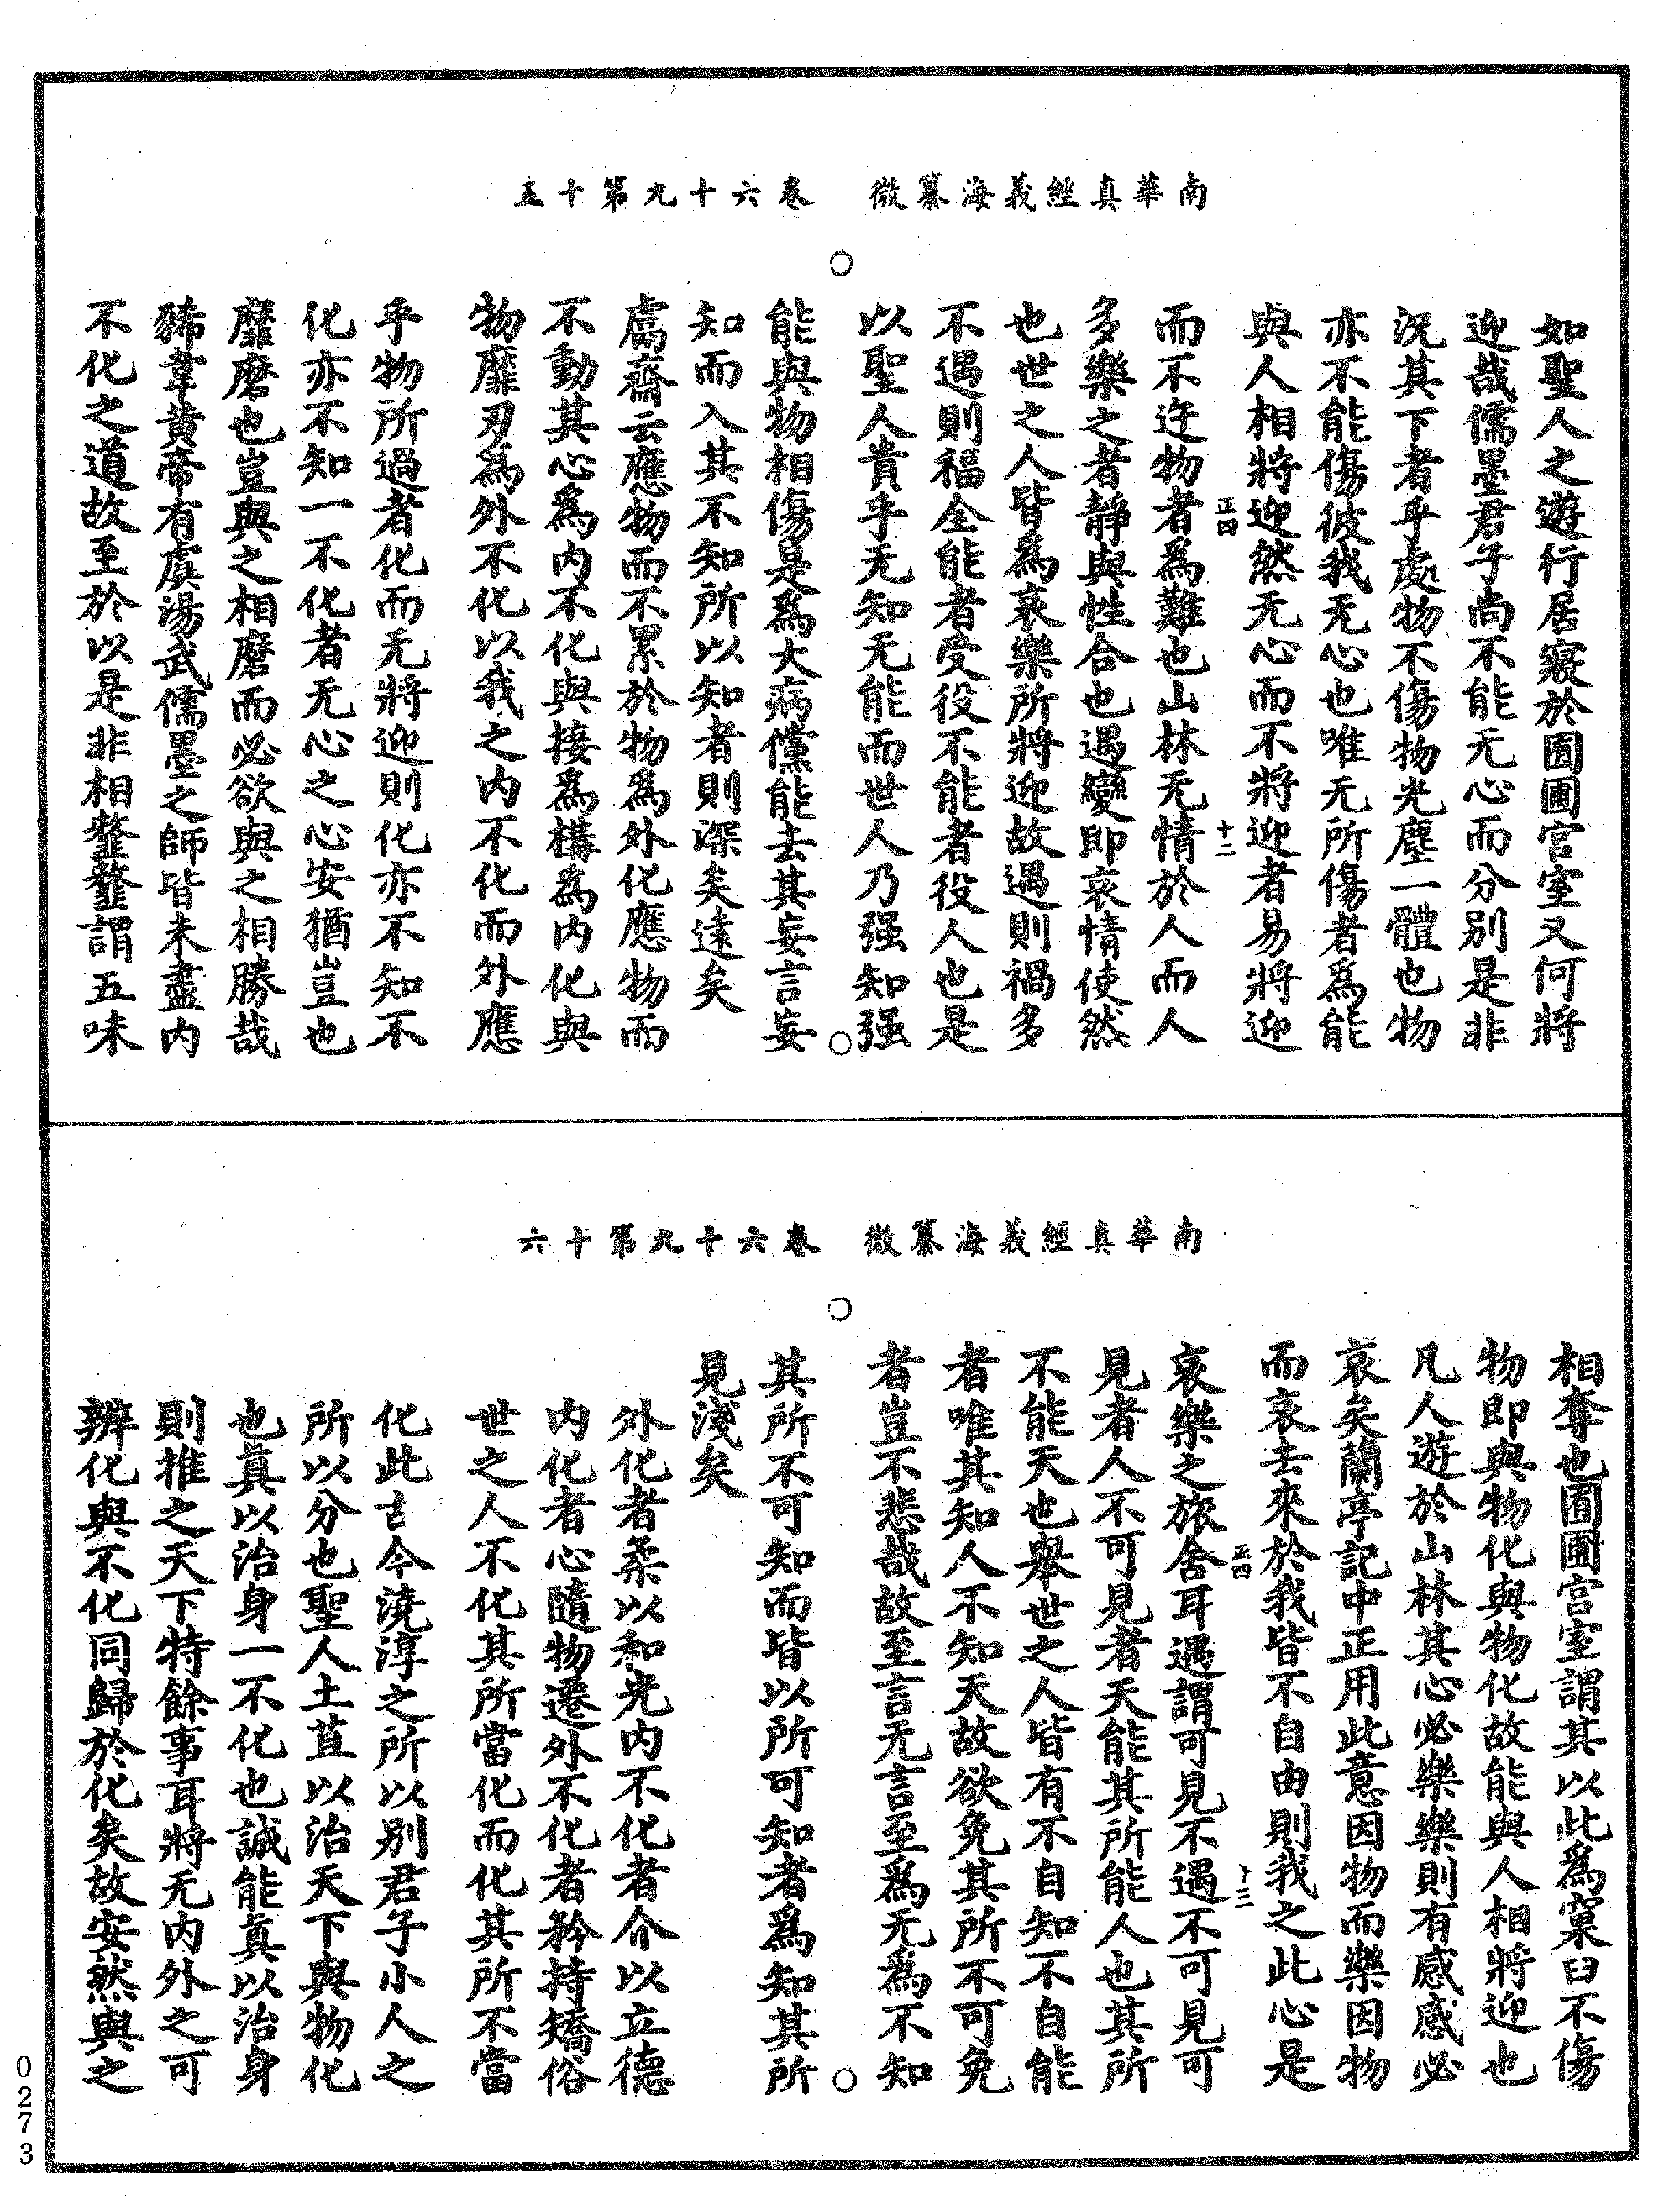 南華真經義海纂微　卷六十九第十五
如聖人之遊行居寢於囿圃宫室又何將
迎哉儒墨君子尚不能无心而分别是非
况其下者乎處物不傷物光塵一體也物
亦不能傷彼我无心也唯无所傷者爲能
與人相將迎然无心而不將迎者易將迎
而不迕物者爲難也山林无情於人而人
正四　十二
多樂之者静與性合也遇變即哀情使然
也世之人皆爲哀樂所將迎故遇則禍多
不遇則福全能者受役不能者役人也是
以聖人貴乎无知无能而世人乃强知强
能與物相傷是爲大病儻能去其妄言妄
知而入其不知所以知者則深矣遠矣
鬳齋云應物而不累於物爲外化應物而
不動其心爲内不化與接爲構爲内化與
物靡刃爲外不化以我之内不化而外應
乎物所過者化而无將迎則化亦不知不
化亦不知一不化者无心之心安猶豈也
靡磨也豈與之相磨而必欲與之相勝哉
狶韋黄帝有虞湯武儒墨之師皆未盡内
不化之道故至於以是非相䪠䪠謂五味
南華真經義海纂微　卷六十九第十六
相奪也囿圃宫室謂其以此爲窠臼不傷
物即與物化與物化故能與人相將迎也
凡人遊於山林其心必樂樂則有感感必
哀矣蘭亭記中正用此意因物而樂因物
而哀去來於我皆不自由則我之此心是
哀樂之旅舍耳遇謂可見不遇不可見可
正四　十三
見者人不可見者天能其所能人也其所
不能天也舉世之人皆有不自知不自能
者唯其知人不知天故欲免其所不可免
者豈不悲哉故至言无言至爲无爲不知
其所不可知而皆以所可知者爲知其所
見淺矣
外化者柔以和光内不化者介以立德
内化者心隨物遷外不化者矜持矯俗
世之人不化其所當化而化其所不當
化此古今澆淳之所以别君子小人之
所以分也聖人土苴以治天下與物化
也真以治身一不化也誠能真以治身
則推之天下特餘事耳將无内外之可
辨化與不化同歸於化矣故安然與之
0273